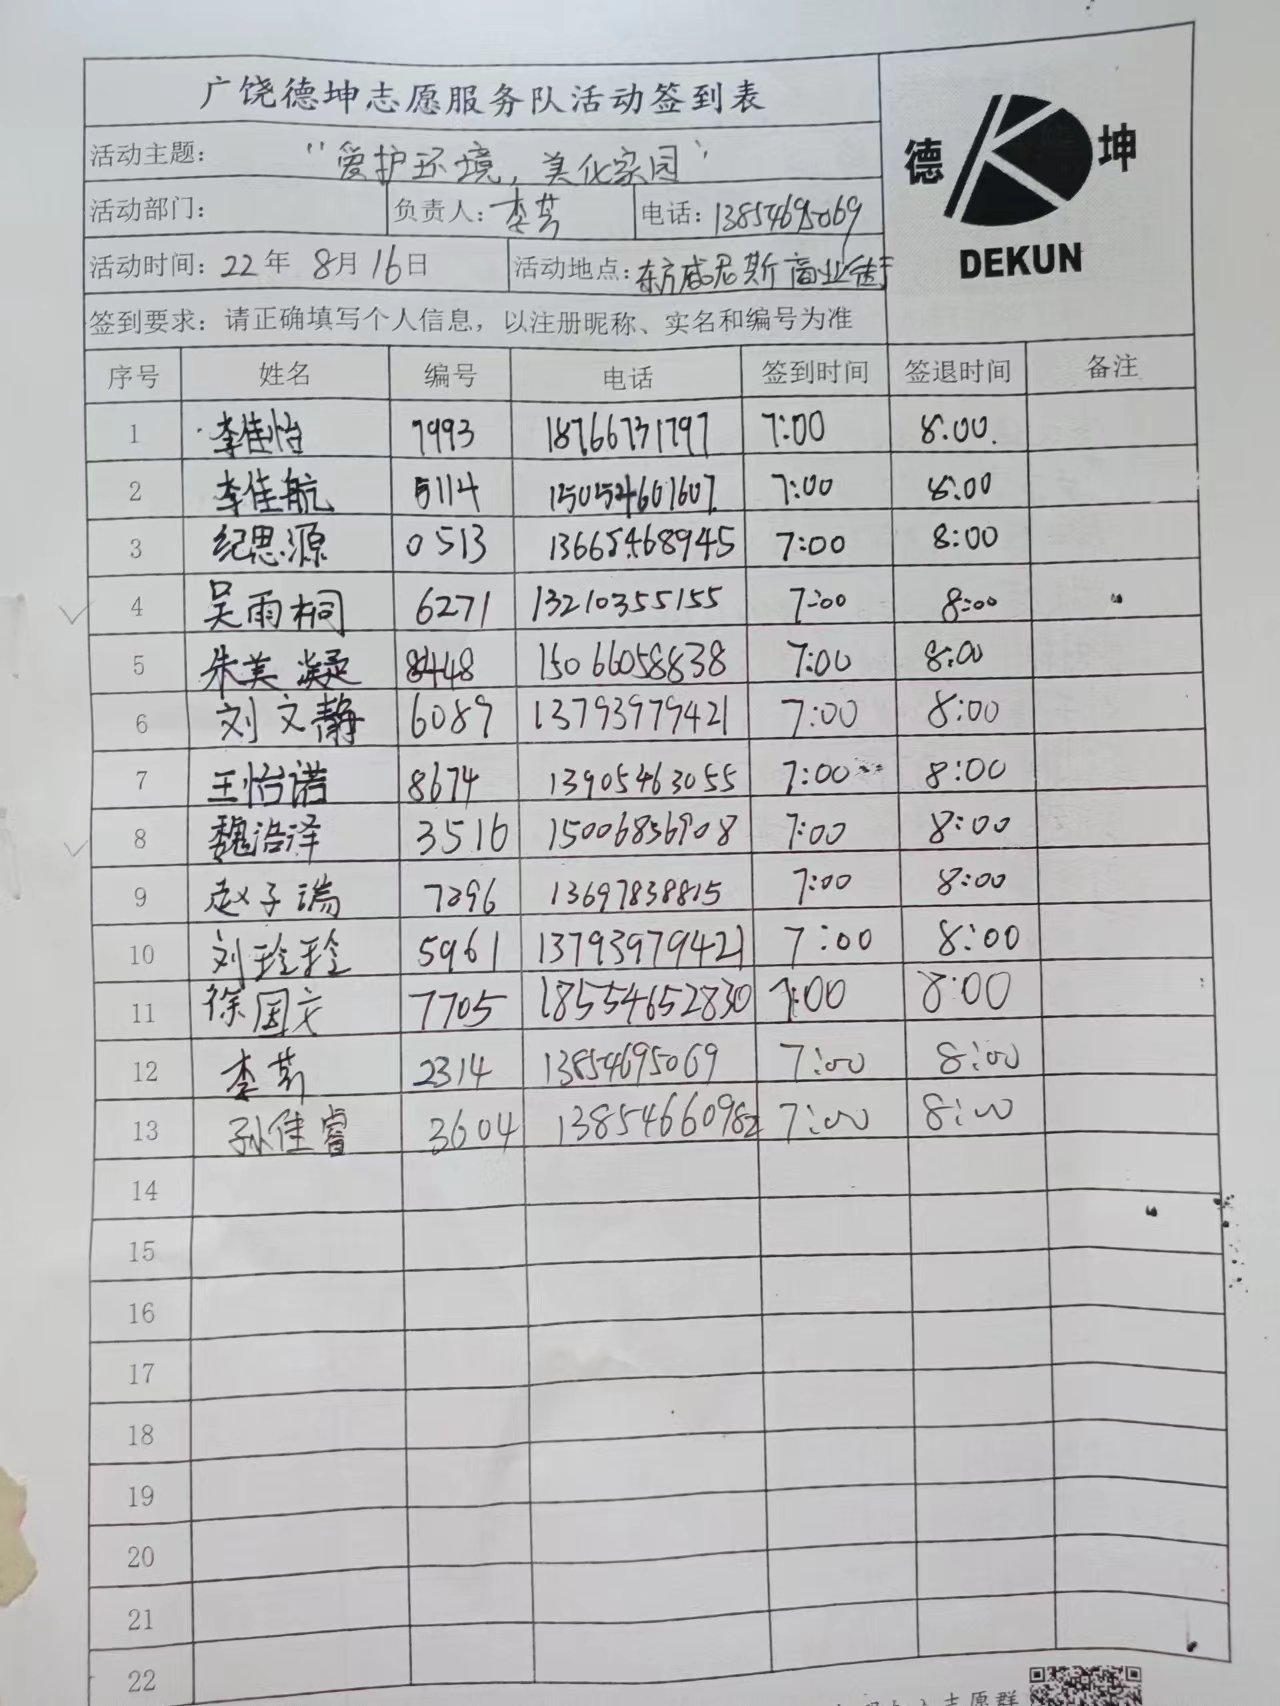 广饶德坤志愿服务队活动签到表
德 坤
DEKUN
活动主题： “爱护环境，美化家园”
活动部门： 负责人：李芳 电话：13854695069
活动时间：22年 8月16日 活动地点：东方威尼斯商业街
签到要求：请正确填写个人信息，以注册昵称、实名和编号为准
序号 姓名 编号 电话 签到时间 签退时间 备注
1 李佳怡 7993 18766731797 7:00 8:00.
2 李佳航 5114 7:00 8:00
3 纪思源 0513 13665468945 7:00 8:00
4 吴雨桐 6271 13210355155 7:00 8:00
5 朱美凝 8448 15066058838 7:00 8:00
6 刘文静 6089 13793979421 7:00 8:00
7 王怡诺 8674 13905463055 7:00 8:00
8 魏浩泽 3516 15006856908 7:00 8:00
9 赵子瑞 7296 13697838815 7:00 8:00
10 刘玲玲 5961 13793979421 7:00 8:00
11 徐国文 7705 18554652830 7:00 8:00
12 李芳 2314 13854695069 7:00 8:00
13 孙佳睿 3604 13854660982 7:00 8:00
14
15
16
17
18
19
20
21
22
志愿群